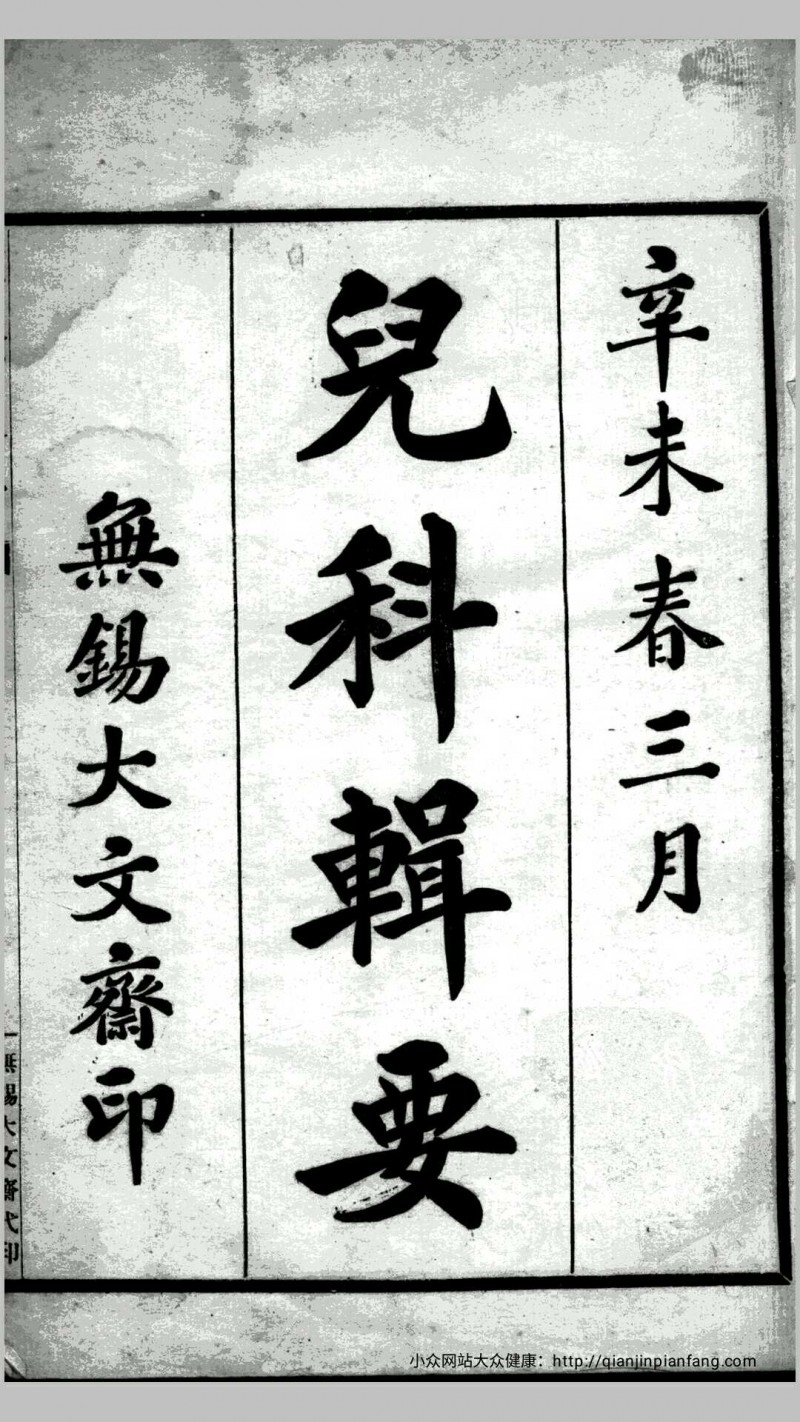 辛未春三月
兒科輯要
無錫大文齋印
無錫大文齋代印
小众网站大众健康：http://qianjinpianfang.com